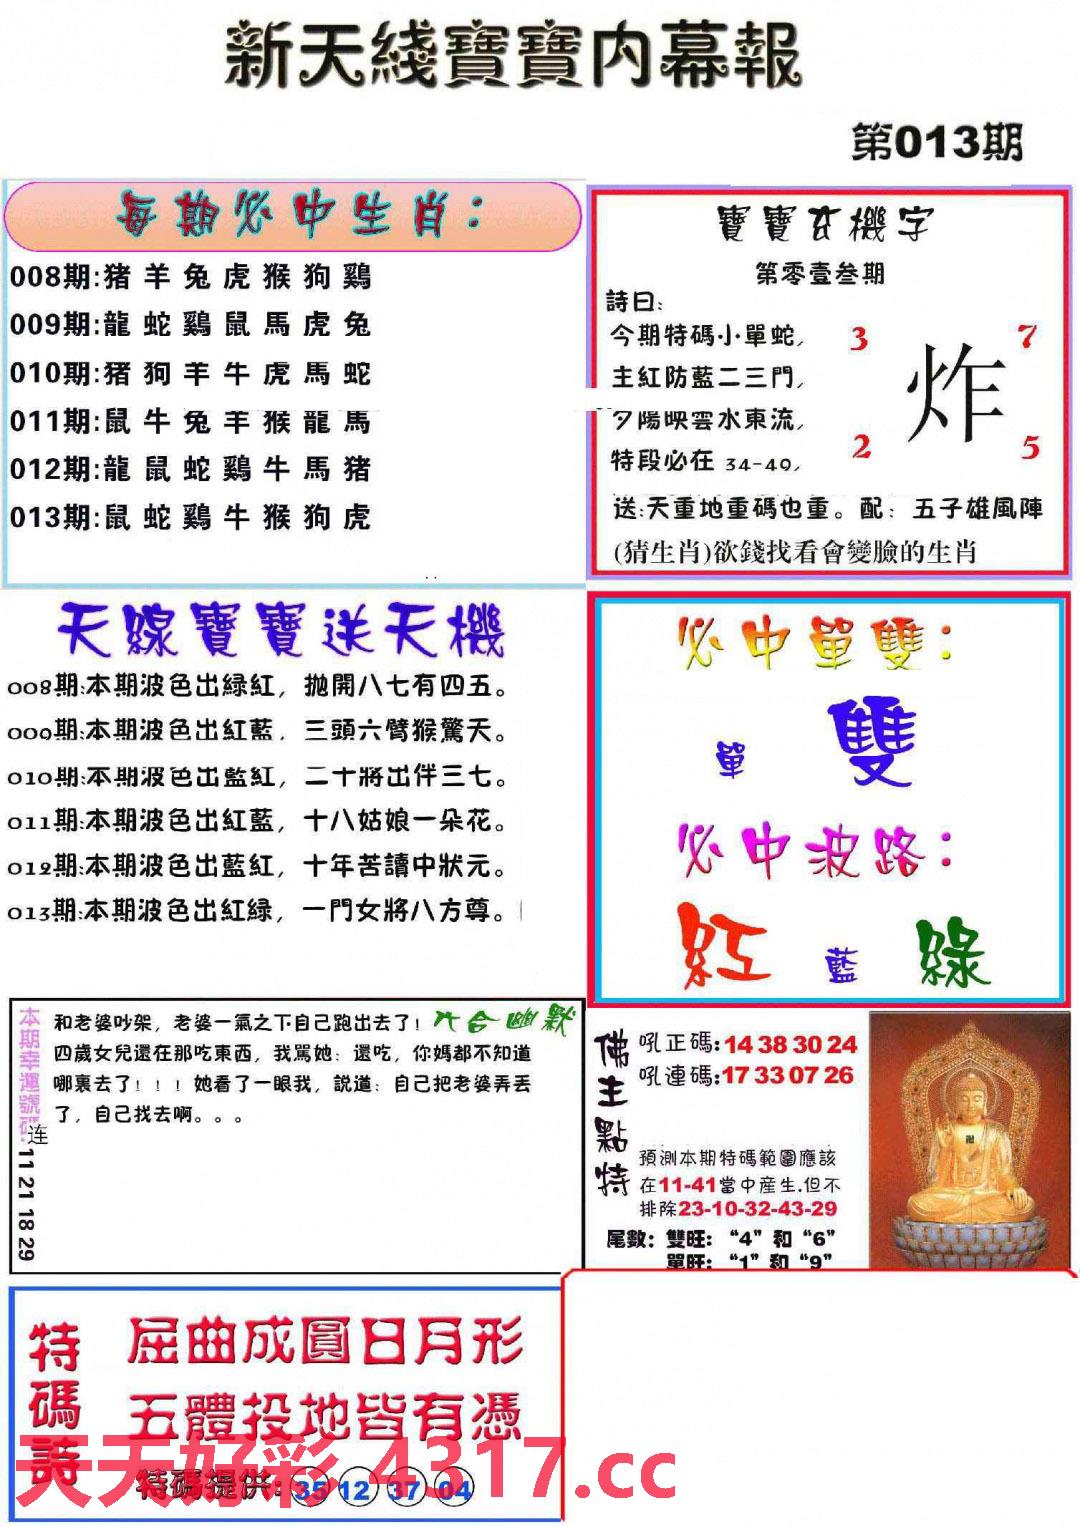 新天綫寶寶內幕報
第013期
每期必中生肖：
008期:猪羊兔虎猴狗鷄
009期:龍蛇鷄鼠馬虎兔
010期:猪狗羊牛虎馬蛇
011期:鼠牛兔羊猴龍馬
012期:龍鼠蛇鷄牛馬猪
013期:鼠蛇鷄牛猴狗虎
寶寶玄機字
第零壹叁期
詩曰:
今期特碼小單蛇,
主紅防藍二三門,
夕陽映雲水東流,
特段必在 34-49,
3 7
炸
2 5
送:天重地重碼也重。配：五子雄風陣
(猜生肖)欲錢找看會變臉的生肖
天線寶寶送天機
008期:本期波色出緑紅，拋開八七有四五。
009期:本期波色出紅藍，三頭六臂猴驚天。
010期:本期波色出藍紅，二十將出伴三七。
011期:本期波色出紅藍，十八姑娘一朵花。
012期:本期波色出藍紅，十年苦讀中狀元。
013期:本期波色出紅緑，一門女將八方尊。
必中單雙：
單 雙
必中波路：
紅 藍 綠
本期幸運號碼:
连
11 21 18 29
六合幽默
和老婆吵架，老婆一氣之下自己跑出去了！
四歲女兒還在那吃東西，我罵她：還吃，你媽都不知道
哪裏去了！！！她看了一眼我，説道：自己把老婆弄丟
了，自己找去啊。。。
佛主點特
吼正碼:14 38 30 24
吼連碼:17 33 07 26
預測本期特碼範圍應該
在11-41當中産生.但不
排除23-10-32-43-29
尾數：雙旺：“4”和“6”
單旺：“1”和“9”
特碼詩
屈曲成圓日月形
五體投地皆有憑
特碼提供: 35 12 37 04
天天好彩 4317.cc